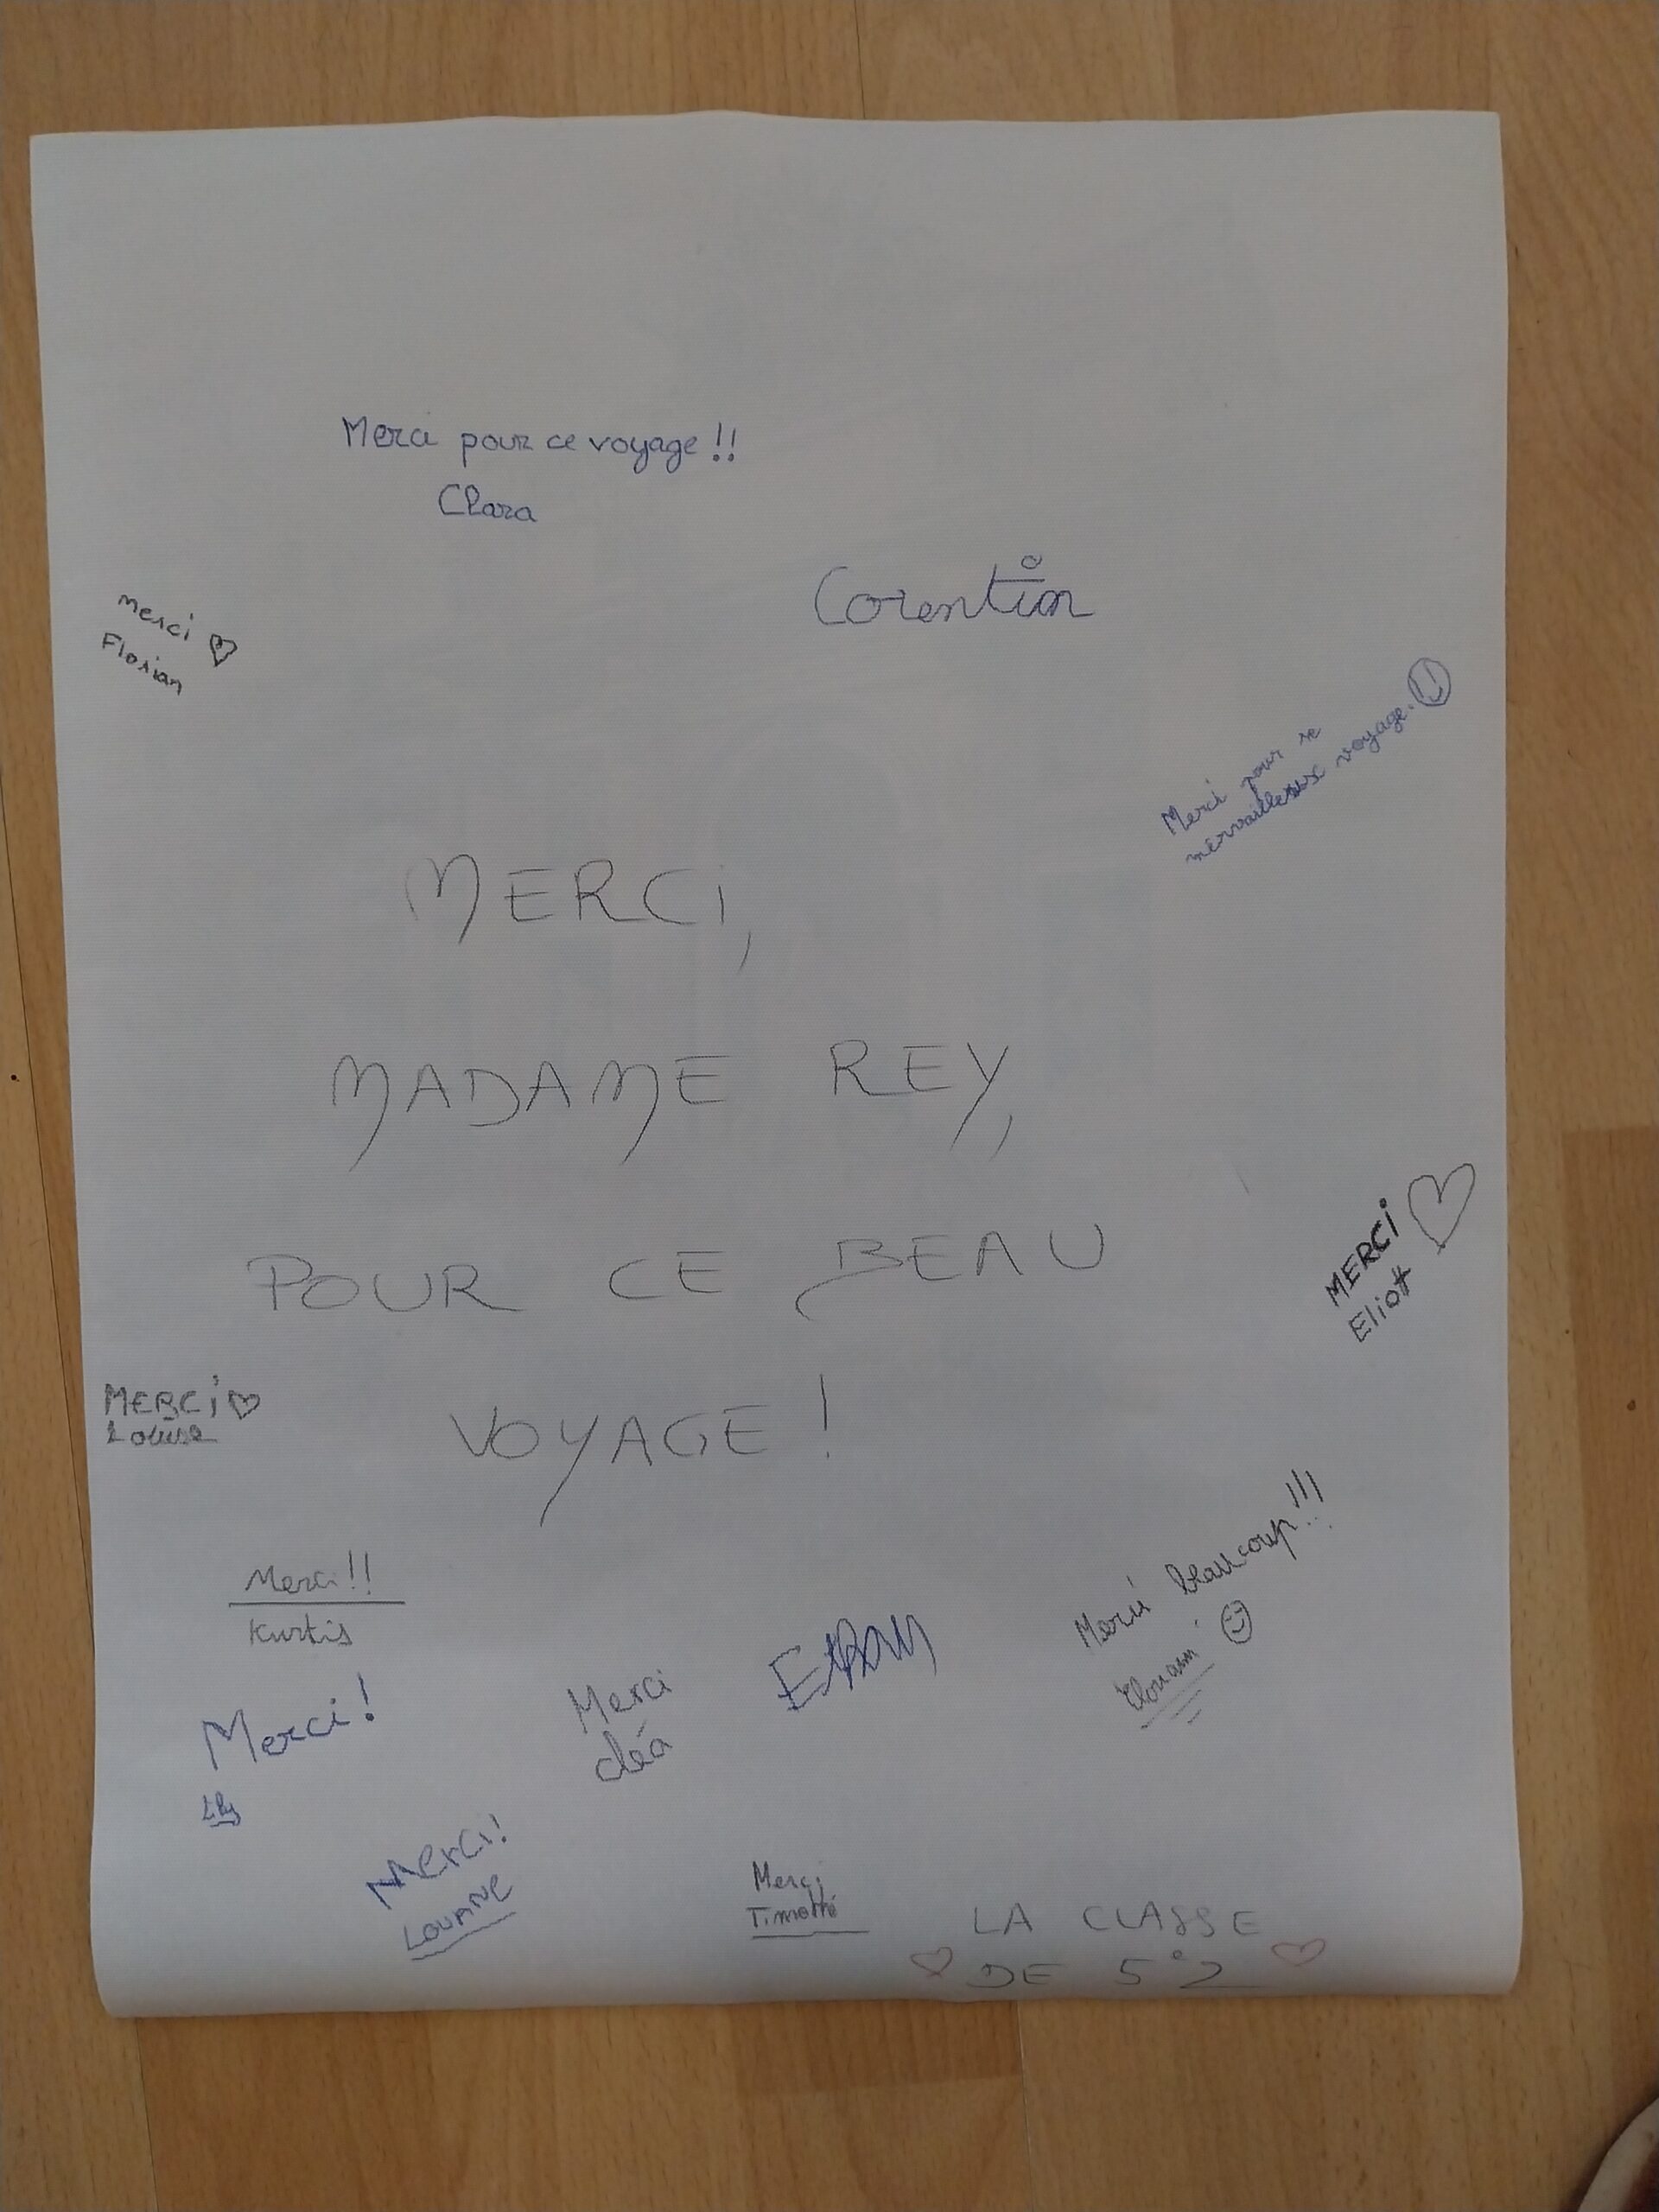 Merci pour ce voyage !!
Clara
Corentin
merci
Florian
Merci pour se
merveilleux voyage.
MERCi,
MADAME REY,
POUR CE BEAU
VOYAGE !
MERCi
Eliott
MERCi
Louise
Merci!!
Kurtis
Merci beaucoup!!!
Merci!
Lily
Merci
cléa
Merci!
LOUANE
Merci
Timothé
LA CLASSE
DE 5°2